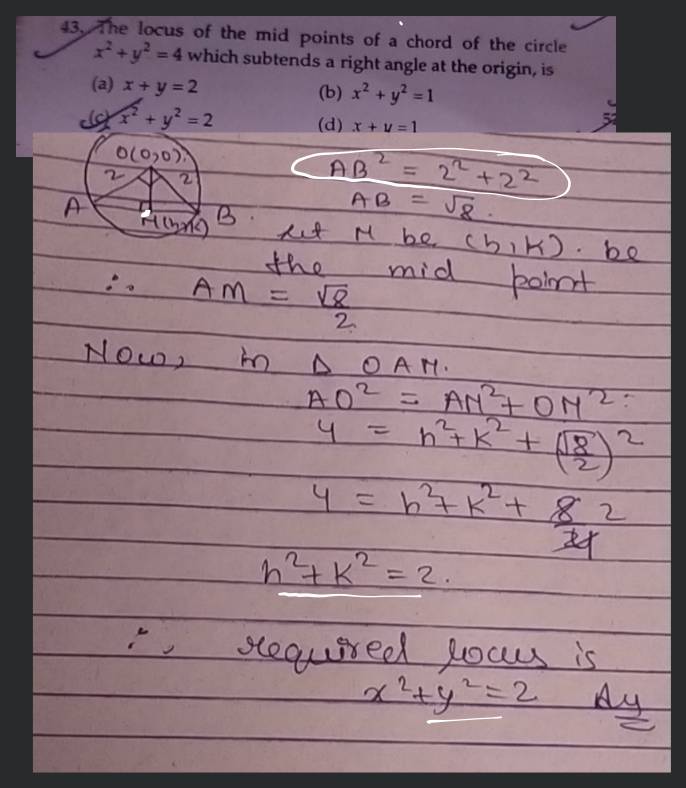 43. The locus of the mid points of a chord of the circle
x² + y² = 4 which subtends a right angle at the origin, is
(a) x + y = 2
(b) x² + y² = 1
(c) x² + y² = 2
(d) x + y = 1
52
O(0,0)
2 2
A M(h,k) B
AB² = 2² + 2²
AB = √8.
let M be (h,k). be
the mid point
∴ AM = √8/2
Now, in Δ OAM.
AO² = AM² + OM²
4 = h² + k² + (√8/2)²
4 = h² + k² + 8/4 2
h² + k² = 2.
∴ required locus is
x² + y² = 2 Ay